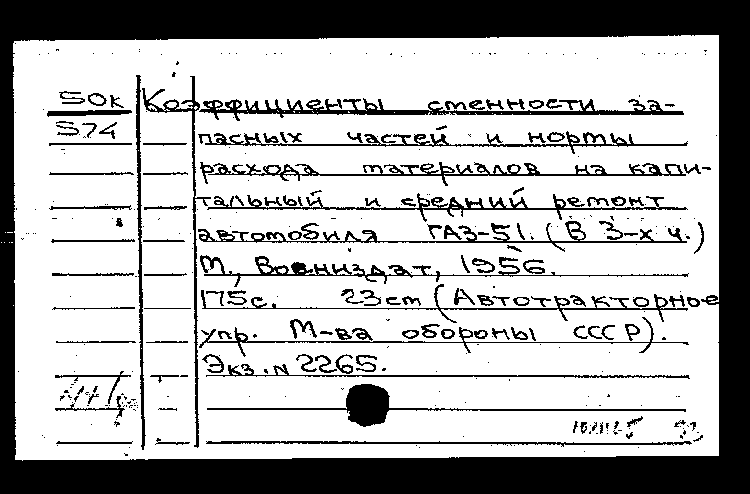 50к Коэффициенты сменности за-
S74 пасных частей и нормы
расхода материалов на капи-
тальный и средний ремонт
автомобиля ГАЗ-51. (В 3-х ч.)
М., Воениздат, 1956.
175с. 23см (Автотракторное
упр. М-ва обороны СССР).
Экз. N 2265.